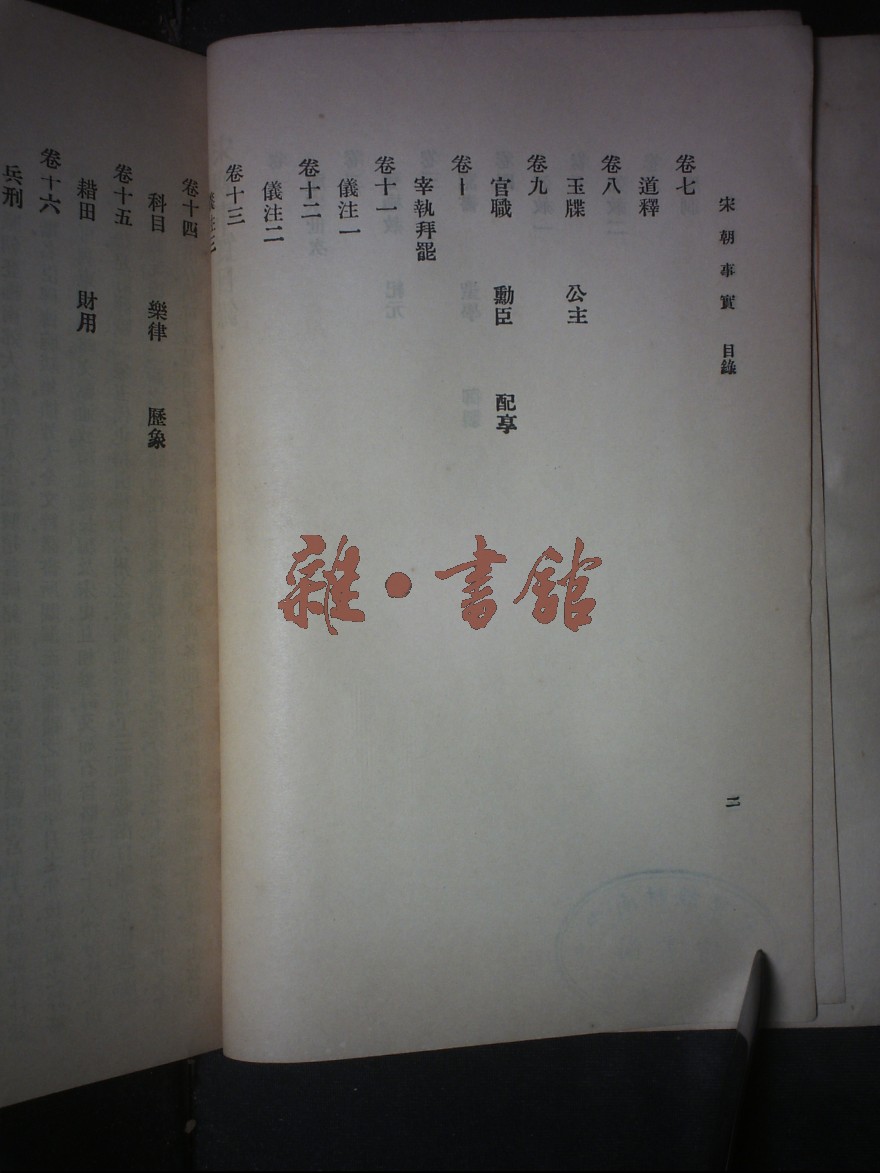 宋朝事實　目錄
卷七
道釋
卷八
玉牒　公主
卷九
官職　勳臣　配享
卷十
宰執拜罷
卷十一
儀注一
卷十二
儀注二
卷十三
儀注三
卷十四
科目　樂律　歷象
卷十五
耤田　財用
卷十六
兵刑
二
雜·書館